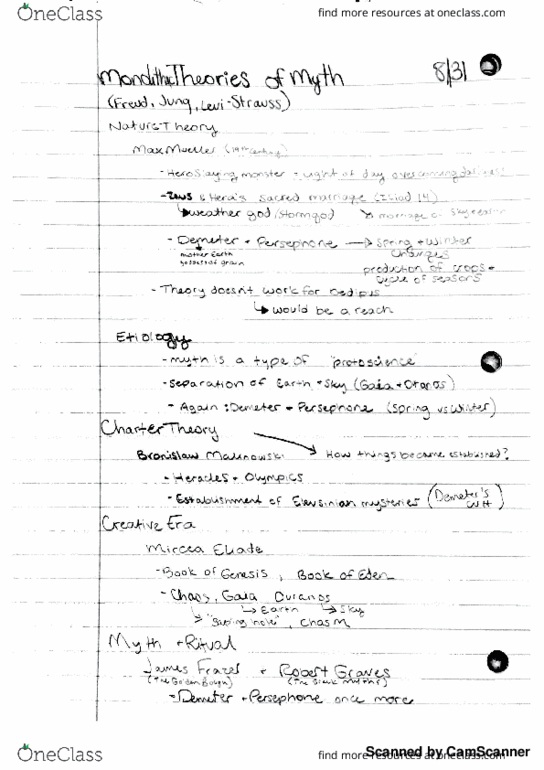 OneClass
find more resources at oneclass.com
Monolithic Theories of Myth 8/31
(Freud, Jung, Levi-Strauss)
Nature Theory
Max Mueller (19th century)
- Hero slaying monster - Light of day overcoming darkness!
- Zeus & Hera's Sacred marriage (Iliad 14)
weather god/storm god marriage of sky + earth
- Demeter + Persephone → Spring + Winter
mother Earth changes
goddess of grain
production of crops +
cycle of seasons
- Theory doesn't work for Oedipus
↳ would be a reach
Etiology
- myth is a type of "protoscience"
- separation of Earth + Sky (Gaia + Ouranos)
- Again: Demeter + Persephone (Spring vs Winter)
Charter Theory
Bronislaw Malinowski How things became established?
- Heracles + Olympics
- Establishment of Eleusinian mysteries (Demeter's Cult)
Creative Era
Mircea Eliade
- Book of Genesis, Book of Eden
- Chaos, Gaia, Ouranos
↳ Earth ↳ Sky
"gaping hole", chasm
Myth + Ritual
James Frazer + Robert Graves
(The Golden Bough) (The Greek Myths)
- Demeter + Persephone once more
OneClass
find more resources at oneclass.com
Scanned by CamScanner